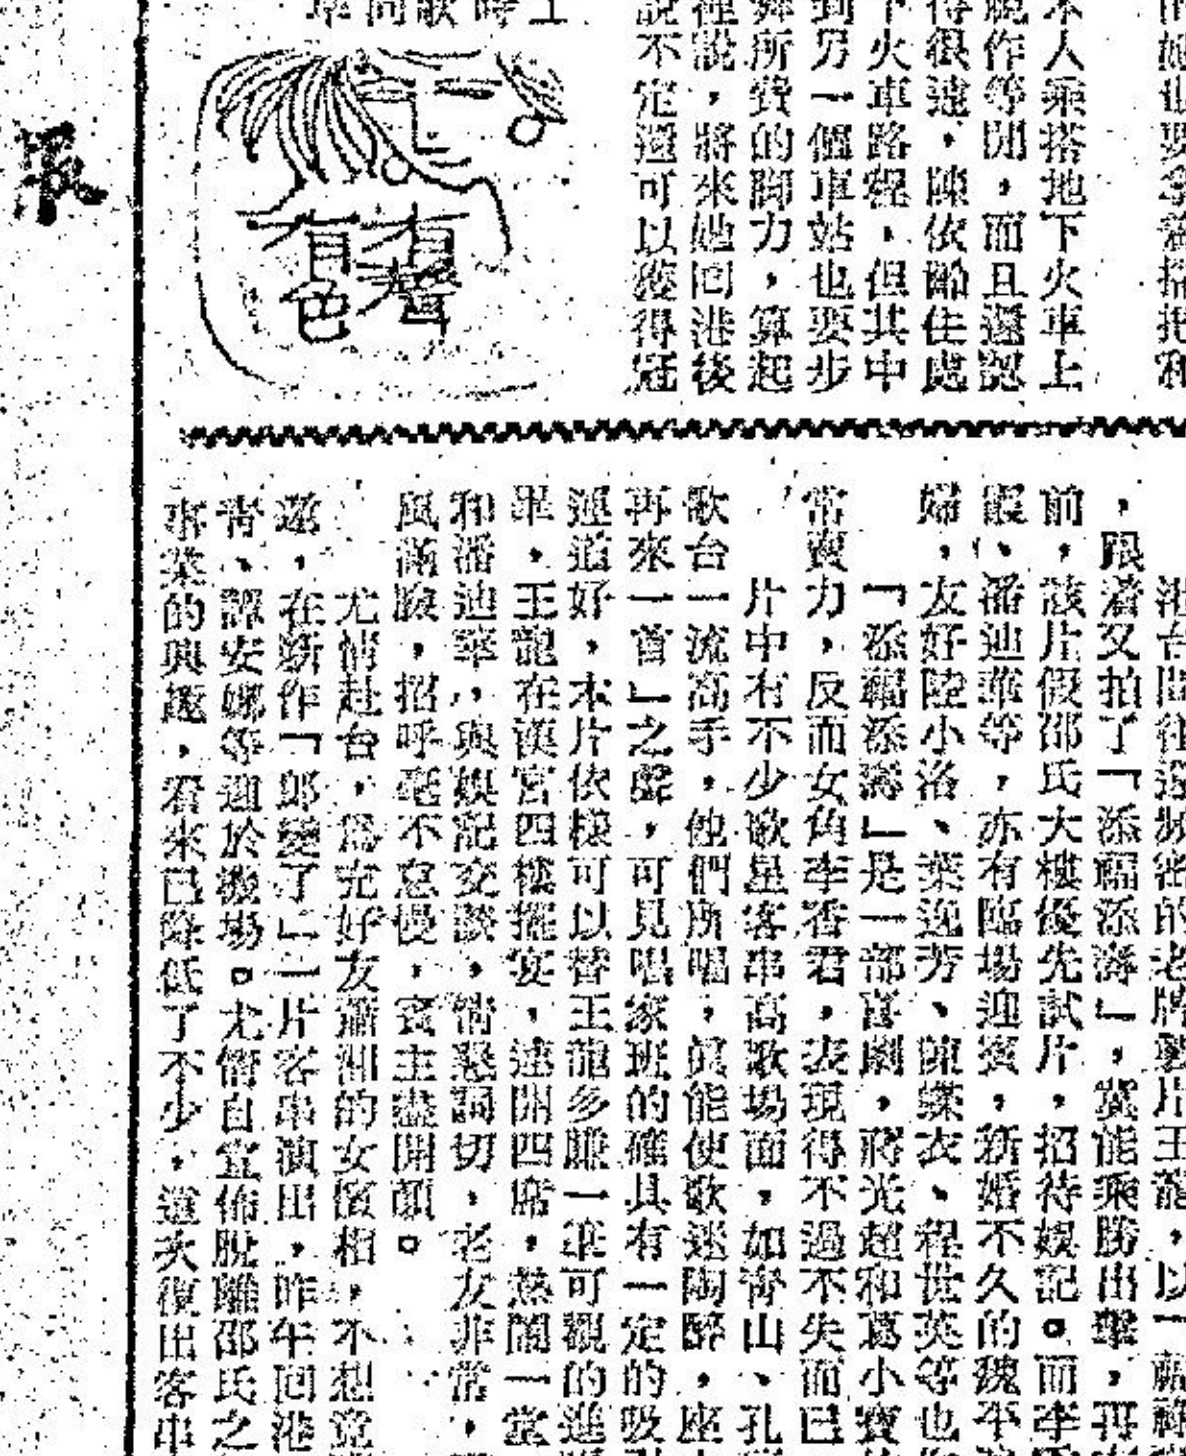 的
本人乘搭地下火車上
脫作等閒,而且還認
得很遠,陳依齡住處
下火車路程,但其中
到另一個車站也要步
舞所費的脚力,算起
裡說,將來她回港後
說不定還可以獲得冠
上時歌同單
有聲
有色
港台間往還頻密的老牌製片王龍,以一
,跟着又拍了「添福添壽」,冀能乘勝出擊,再
前,該片假邵氏大樓優先試片,招待娛記。而李
霞、潘迪華等,亦有臨場迎賓,新婚不久的魏平
婦,友好陸小洛、葉逸芳、陳蝶衣、程世英等也
「添福添壽」是一部喜劇,蔣光超和葛小寶
常賣力,反而女角李香君,表現得不過不失而已
片中有不少歌星客串高歌場面,如青山、孔
歌台一流高手,他們所唱,眞能使歌迷陶醉,座
再來一首」之聲,可見唱家班的確具有一定的吸
運道好,本片依樣可以替王龍多賺一筆可觀的進
畢,王龍在漢宮四樓擺宴,連開四席,熱鬧一堂
和潘迪華,與娛記交談,情懇詞切,老友非常,
風滿臉,招呼毫不怠慢,賓主盡開顏。
尤情赴台,爲充好友蕭湘的女儐相,不想當
衆,在新作「郎變了」一片客串演出,昨午回港
靑、譚安娜等迎於機場。尤情自宣佈脫離邵氏之
事業的興趣,看來已降低了不少,這次復出客串